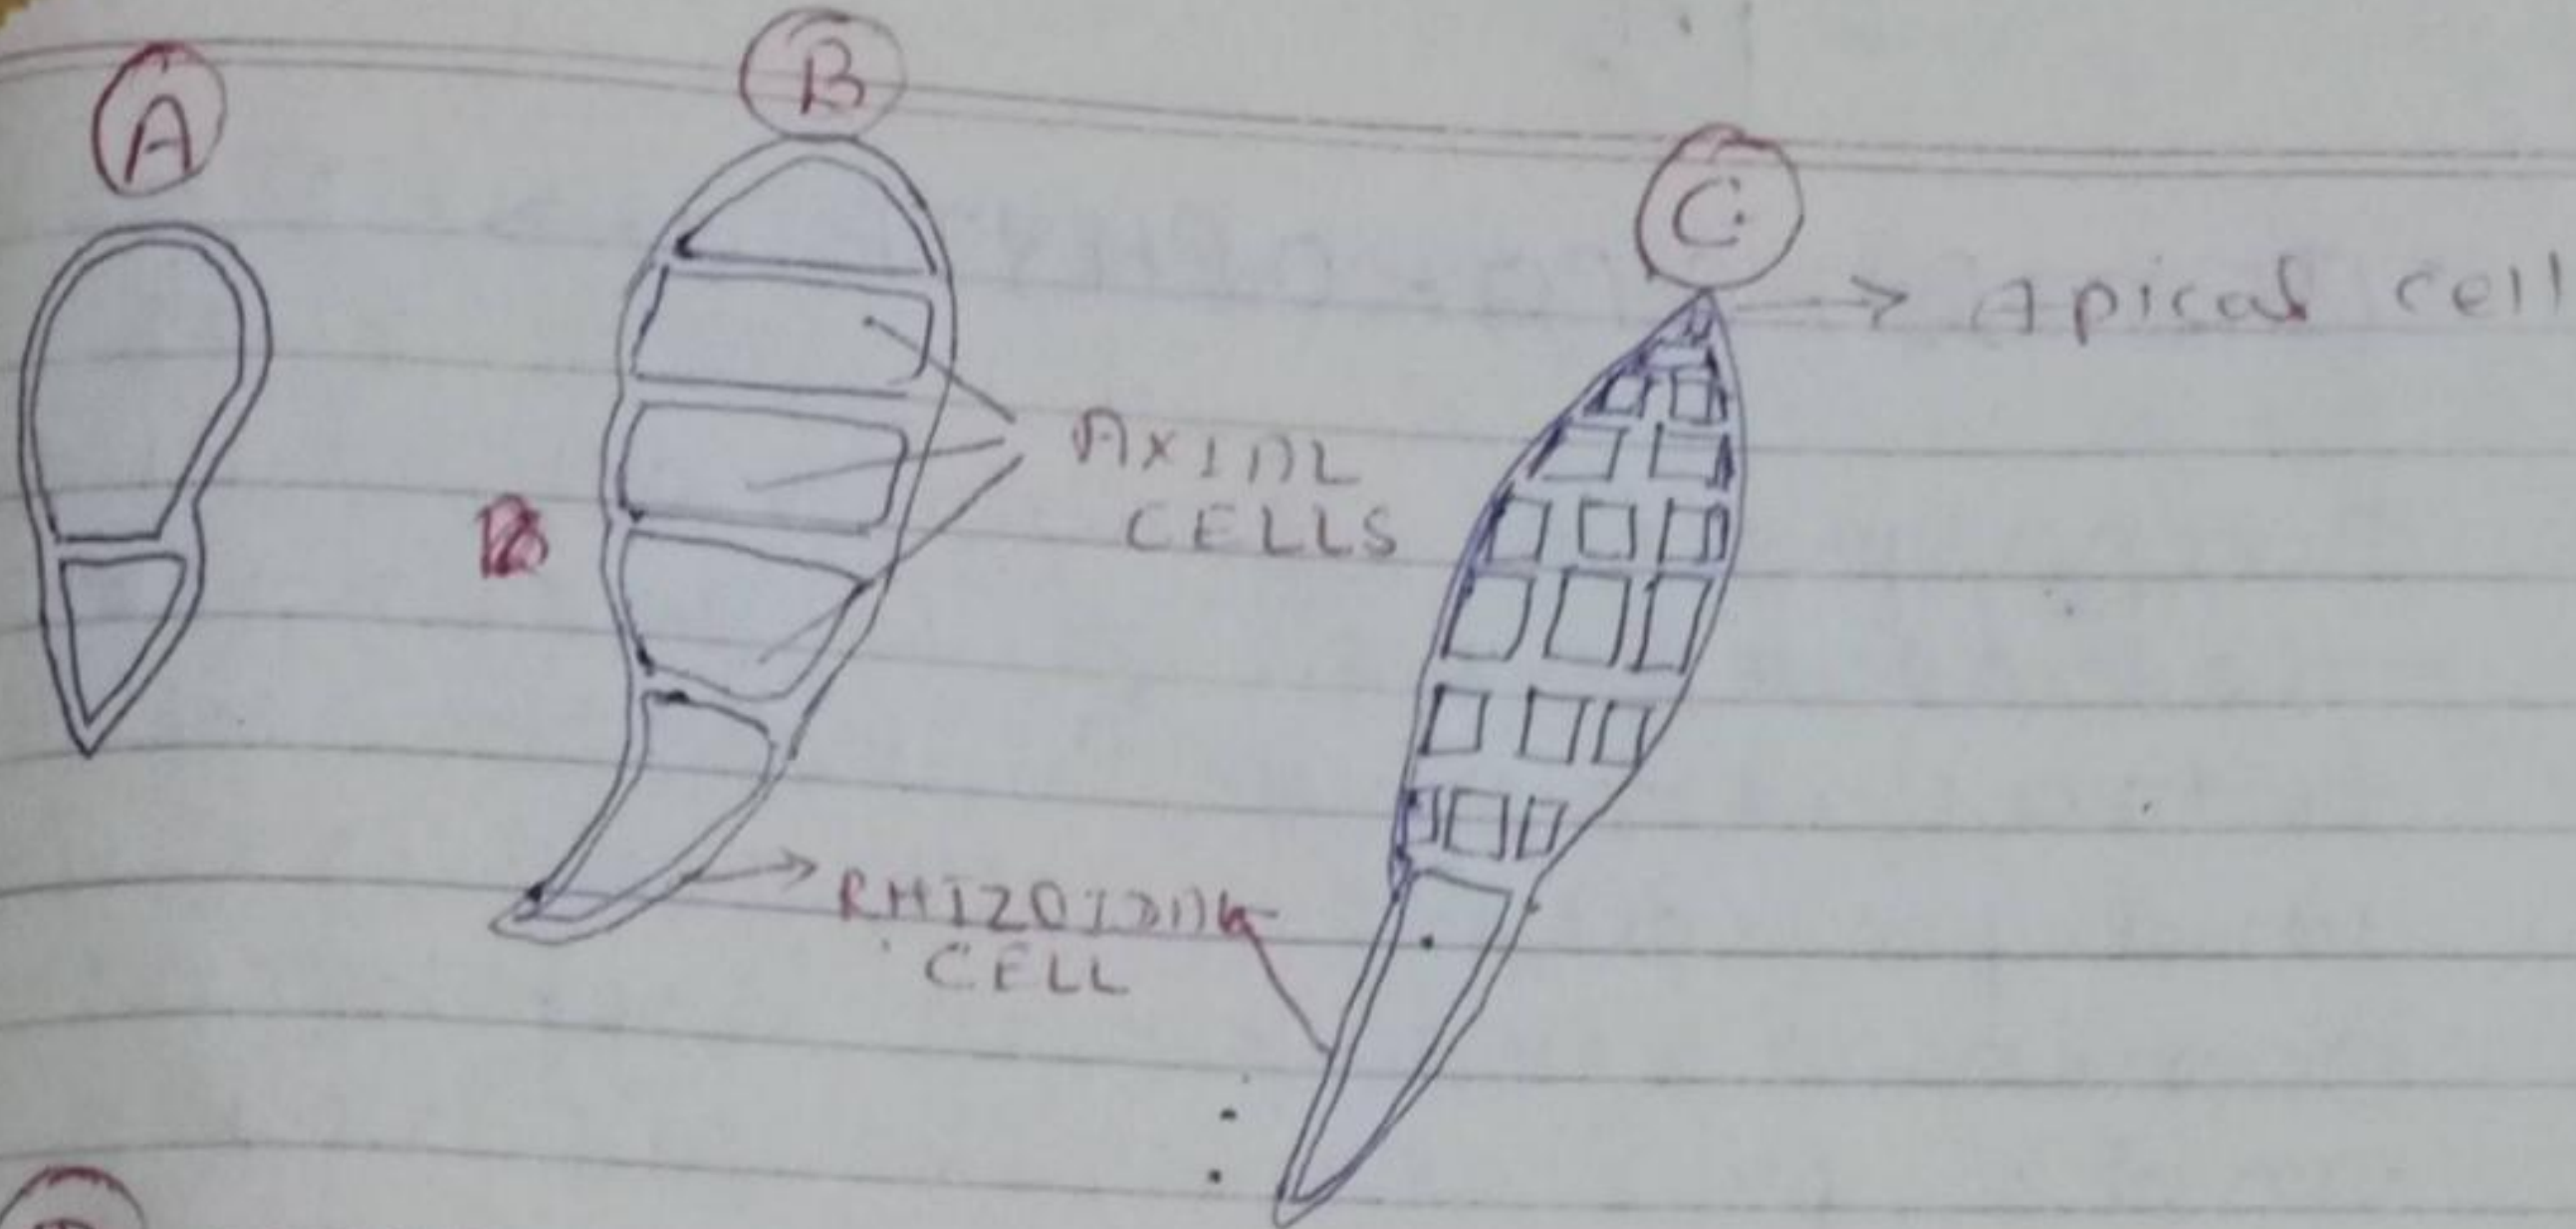 A
B
C
Apical cell
AXIAL
CELLS
RHIZOIDAL
CELL